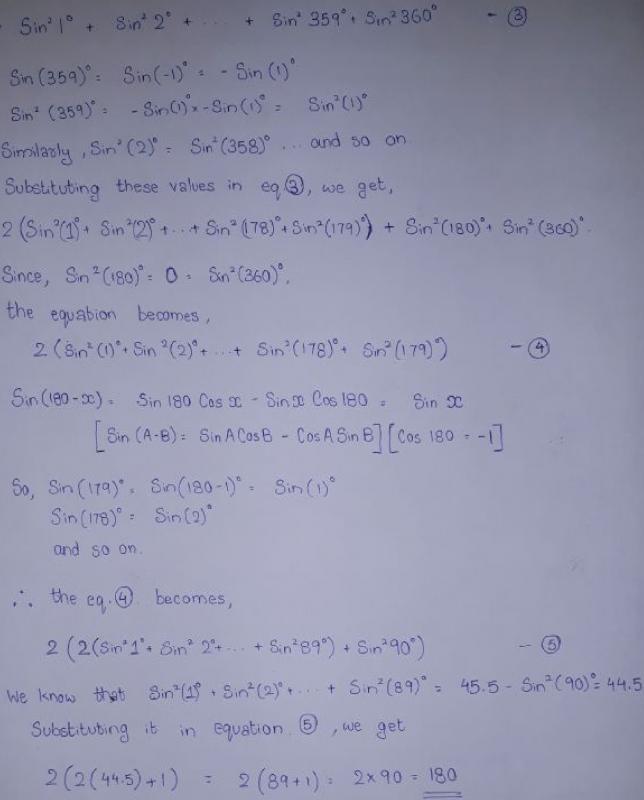 Sin²1° + Sin²2° + ... + Sin²359° + Sin²360° - ③
Sin(359)° = Sin(-1)° = - Sin(1)°
Sin²(359)° = -Sin(1)° x -Sin(1)° = Sin²(1)°
Similarly, Sin²(2)° = Sin²(358)° ... and so on
Substituting these values in eq.③, we get,
2(Sin²(1)° + Sin²(2)° + ... + Sin²(178)° + Sin²(179)°) + Sin²(180)° + Sin²(360)°.
Since, Sin²(180)° = 0 = Sin²(360)°,
the equation becomes,
2(Sin²(1)° + Sin²(2)° + ... + Sin²(178)° + Sin²(179)°) - ④
Sin(180-x) = Sin 180 Cos x - Sin x Cos 180 = Sin x
[Sin (A-B) = Sin A Cos B - Cos A Sin B] [Cos 180 = -1]
So, Sin(179)° = Sin(180-1)° = Sin(1)°
Sin(178)° = Sin(2)°
and so on.
∴ the eq.④ becomes,
2(2(Sin²1° + Sin²2° + ... + Sin²89°) + Sin²90°) - ⑤
We know that Sin²(1)° + Sin²(2)° + ... + Sin²(89)° = 45.5 - Sin²(90)° = 44.5
Substituting it in equation ⑤, we get
2(2(44.5)+1) = 2(89+1) = 2x90 = 180